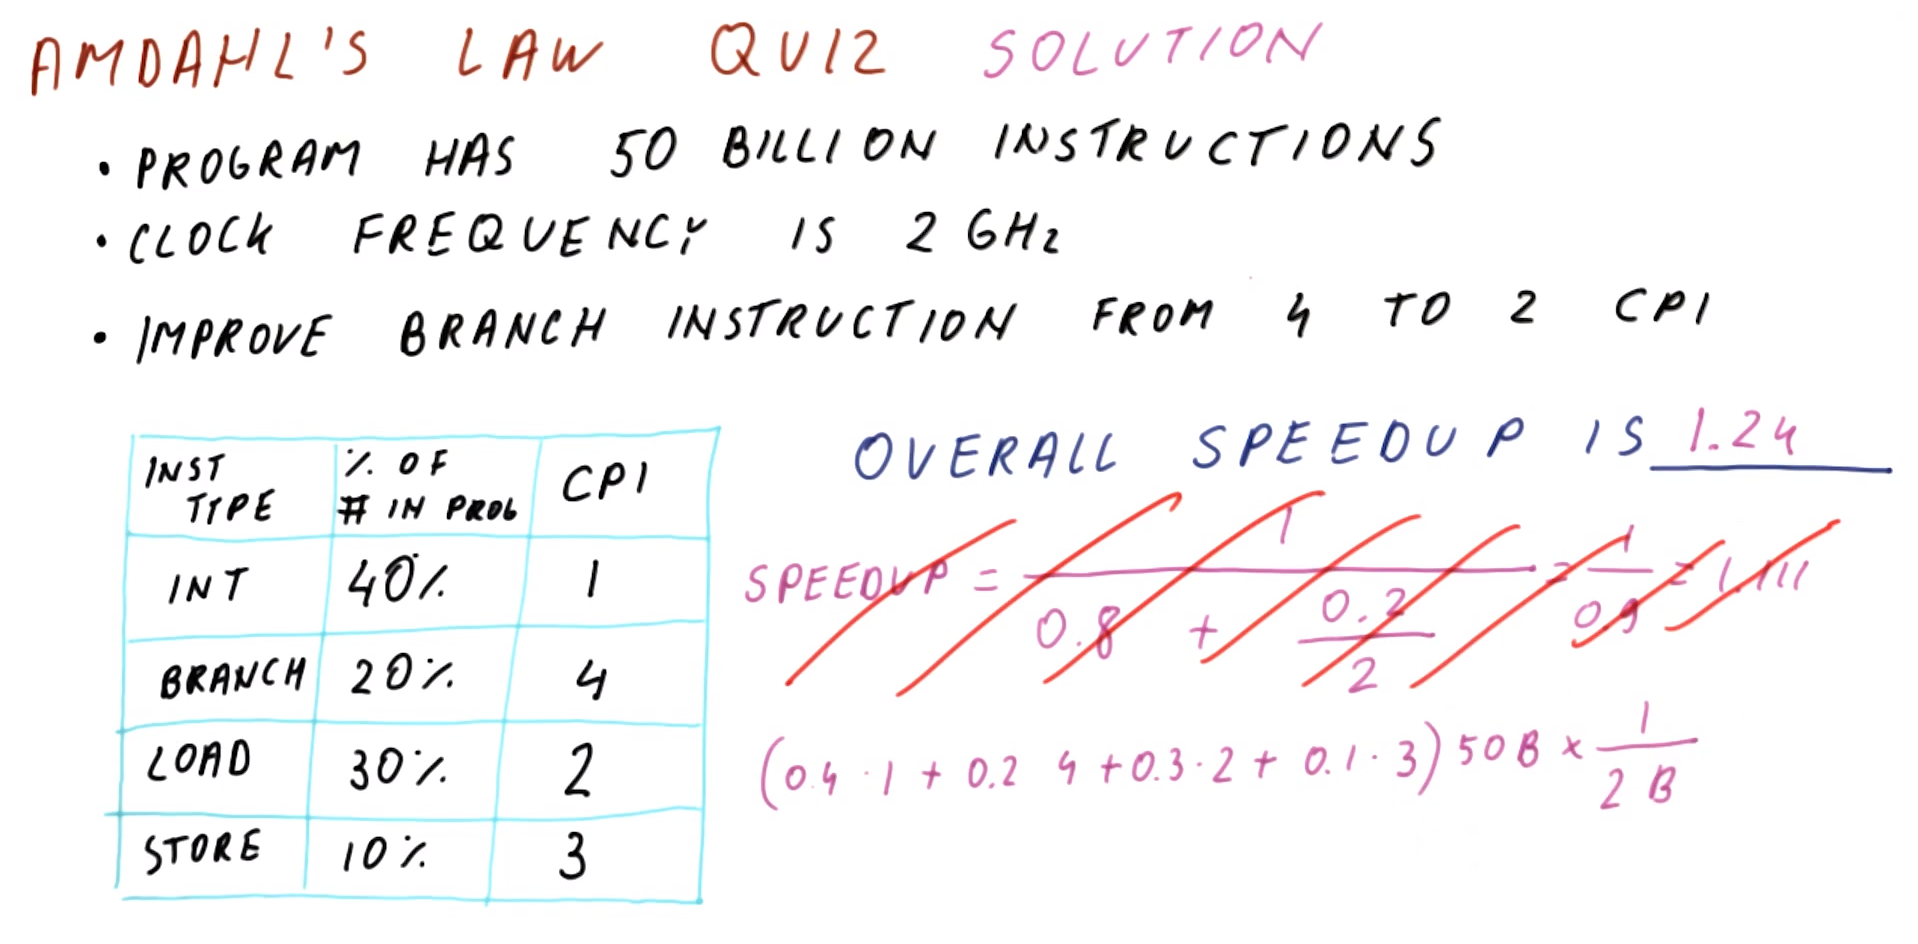 AMDAHL'S LAW QUIZ SOLUTION
• PROGRAM HAS 50 BILLION INSTRUCTIONS
• CLOCK FREQUENCY IS 2 GHz
• IMPROVE BRANCH INSTRUCTION FROM 4 TO 2 CPI
INST TYPE | % OF # IN PROG | CPI
INT | 40% | 1
BRANCH | 20% | 4
LOAD | 30% | 2
STORE | 10% | 3
OVERALL SPEEDUP IS 1.24
SPEEDUP = 1 / (0.8 + 0.2 / 2) = 1 / 0.9 = 1.111
(0.4 · 1 + 0.2 4 + 0.3 · 2 + 0.1 · 3) 50 B × 1 / 2 B